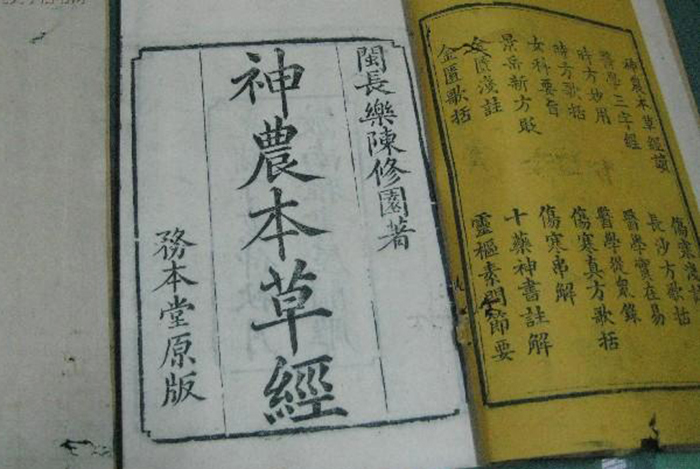 神農本草經讀
醫學三字經
時方妙用
時方歌括
女科要旨
景岳新方
金匱淺註
金匱歌括
傷寒
長沙方歌括
醫學實在易
醫學從衆錄
傷寒真方歌括
傷寒串解
十藥神書註解
靈樞素問節要
閩長樂陳修園著
神農本草經
務本堂原版